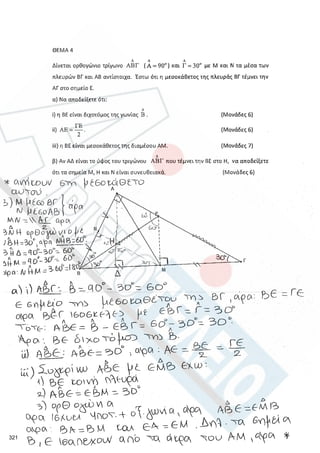 ΘΕΜΑ 4
Δίνεται ορθογώνιο τρίγωνο ΑΒΓ (Α = 90°) και Γ = 30° με Μ και Ν τα μέσα των
πλευρών ΒΓ και ΑΒ αντίστοιχα. Έστω ότι η μεσοκάθετος της πλευράς ΒΓ τέμνει την
ΑΓ στο σημείο Ε.
α) Να αποδείξετε ότι:
i) η ΒΕ είναι διχοτόμος της γωνίας Β. (Μονάδες 6)
ii) ΑΕ = ΓΕ/2. (Μονάδες 6)
iii) η ΒΕ είναι μεσοκάθετος της διαμέσου ΑΜ. (Μονάδες 7)
β) Αν ΑΔ είναι το ύψος του τριγώνου ΑΒΓ που τέμνει την ΒΕ στο Η, να αποδείξετε
ότι τα σημεία Μ, Η και Ν είναι συνευθειακά. (Μονάδες 6)
* ανήκουν στη μεσοκάθετο
αυτού
β) Μ μέσο ΒΓ
Ν μέσο ΑΒ } άρα
ΜΝ = // ΑΓ/2 άρα
άρα
Α
Ε
Ν
Η
Β
Δ
Μ
Γ
30°
α) i) ΑΒΓ: Β = 90° - 30° = 60°
Ε σημείο της μεσοκαθέτου της ΒΓ, άρα: ΒΕ = ΓΕ
άρα ΒΕΓ ισοσκελές με ΕΒΓ = Γ = 30°
Τότε: ΑΒΕ = Β - ΕΒΓ = 60° - 30° = 30°.
Άρα: ΒΕ διχοτόμος της Β.
ii) ΑΒΕ: ΑΒΕ = 30°, άρα: ΑΕ = ΒΕ/2 = ΓΕ/2
iii) Συγκρίνω ΑΒΕ με ΕΜΒ έχω:
1) ΒΕ κοινή πλευρά
2) ΑΒΕ = ΕΒΜ = 30°
3) ορθογώνια
άρα ίσα έχουν υποτ. + οξ. γωνία, άρα ΑΒΕ = ΕΜΒ
άρα: ΒΑ = ΒΜ και ΕΑ = ΕΜ. Δηλ. τα σημεία
Β, Ε ισαπέχουν από τα άκρα του ΑΜ, άρα *
321